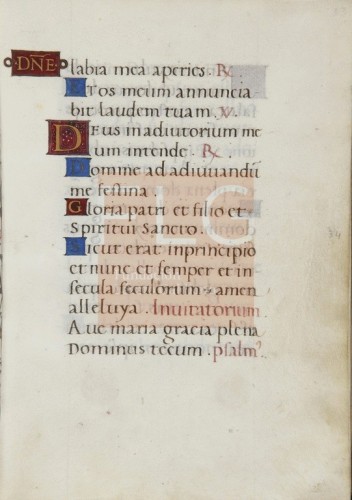 DN̄E labia mea aperies. ℟.
Et os meum annuncia
bit laudem tuam. ℣.
Deus in adiutorium me
um intende. ℟.
Domine ad adiuuandū
me festina.
Gloria patri et filio et
Spiritui Sancto.
Sicut erat in principio
et nunc et semper et in
secula seculorum amen
alleluya. Inuitatorium
Aue maria gracia plena
Dominus tecum. psalm⁹